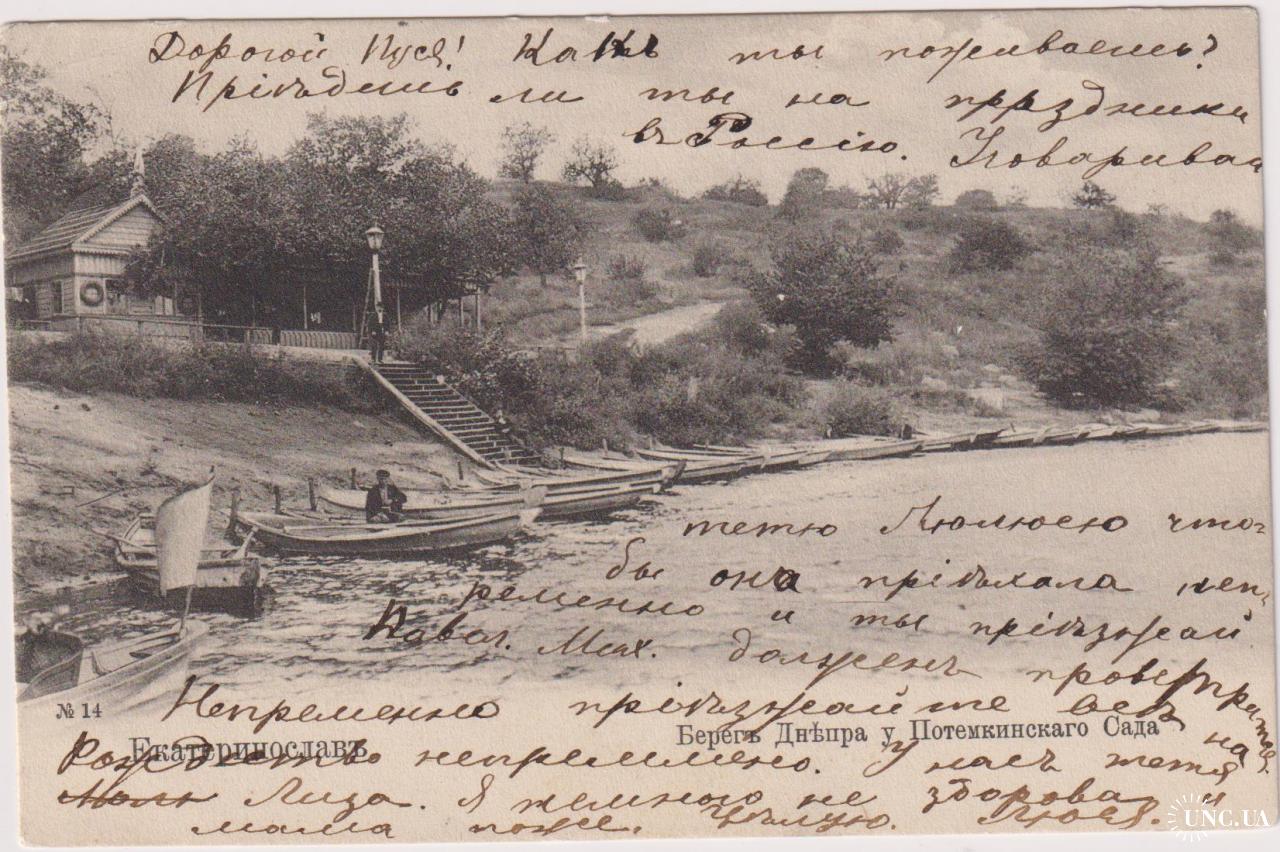 Дорогой Пуся! Какъ ты поживаешь?
Пріѣдешь ли ты на праздники
въ Россію. Уговаривай
тетю Люлюсю что-
бы она пріѣхала неп-
ременно и ты пріѣзжай
Павел. Мих. долженъ
Непременно пріѣзжайте всѣ на
№ 14
Екатеринославъ
Берегъ Днѣпра у Потемкинскаго Сада
Рождество непременно. У насъ тетя
Лиза. Я немного не здорова и
мама тоже. Цѣлую. Люся.
UNC.UA